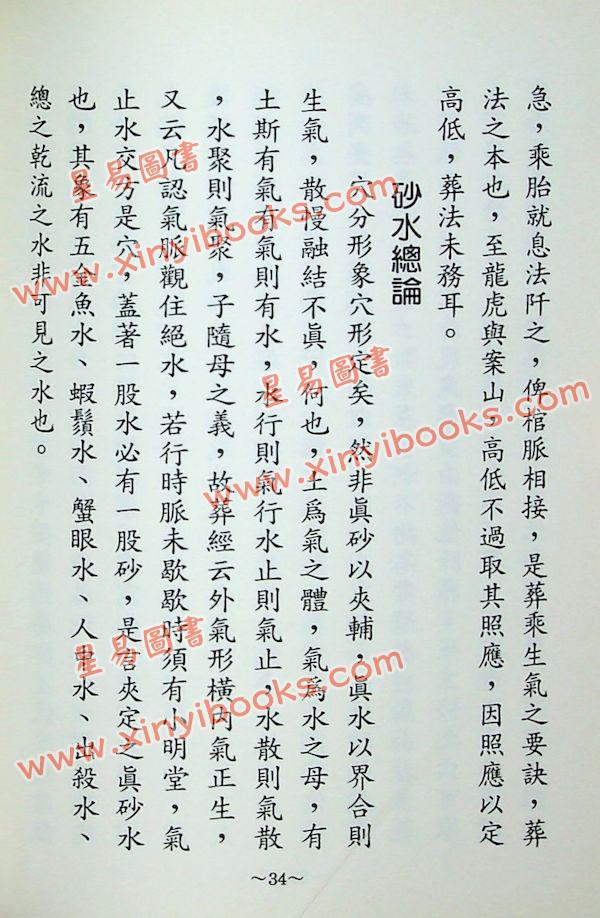 急，乘胎就息法阡之，俾棺脈相接，是葬乘生氣之要訣，葬
法之本也，至龍虎與案山，高低不過取其照應，因照應以定
高低，葬法未務耳。
砂水總論
穴分形象穴形定矣，然非眞砂以夾輔，眞水以界合則
生氣，散慢融結不眞，何也，土爲氣之體，氣爲水之母，有
土斯有氣有氣則有水，水行則氣行水止則氣止，水散則氣散
，水聚則氣聚，子隨母之義，故葬經云外氣形橫內氣正生，
又云凡認氣脈觀住絕水，若行時脈未歇歇時須有小明堂，氣
止水交方是穴，蓋著一股水必有一股砂，是言夾定之眞砂水
也，其象有五金魚水、蝦鬚水、蟹眼水、人中水、出殺水、
總之乾流之水非可見之水也。
～34～
星易圖書
www.xinyibooks.com
星易圖書
www.xinyibooks.com
星易圖書
www.xinyibooks.com